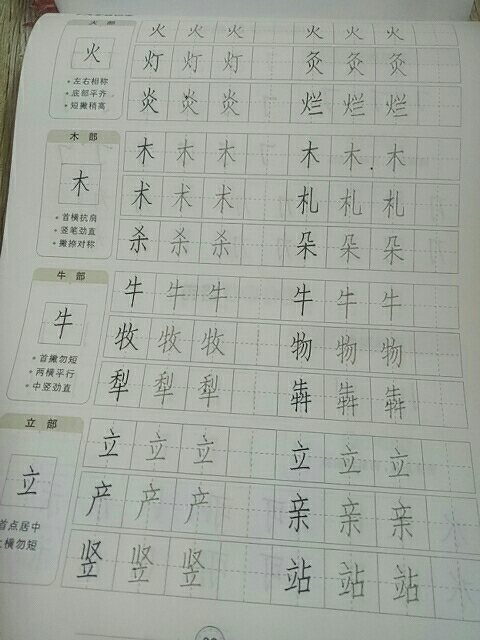 火部
火
• 左右相称
• 底部平齐
• 短撇稍高
火 火 火 火 火 火
灯 灯 灯 灸 灸 灸
炎 炎 炎 烂 烂 烂
木部
木
• 首横抗肩
• 竖笔劲直
• 撇捺对称
木 木 木 木 木 木
术 术 术 札 札 札
杀 杀 杀 朵 朵 朵
牛部
牛
• 首撇勿短
• 两横平行
• 中竖劲直
牛 牛 牛 牛 牛 牛
牧 牧 牧 物 物 物
犁 犁 犁 犇 犇 犇
立部
立
首点居中
横勿短
立 立 立 立 立 立
产 产 产 亲 亲 亲
竖 竖 竖 站 站 站